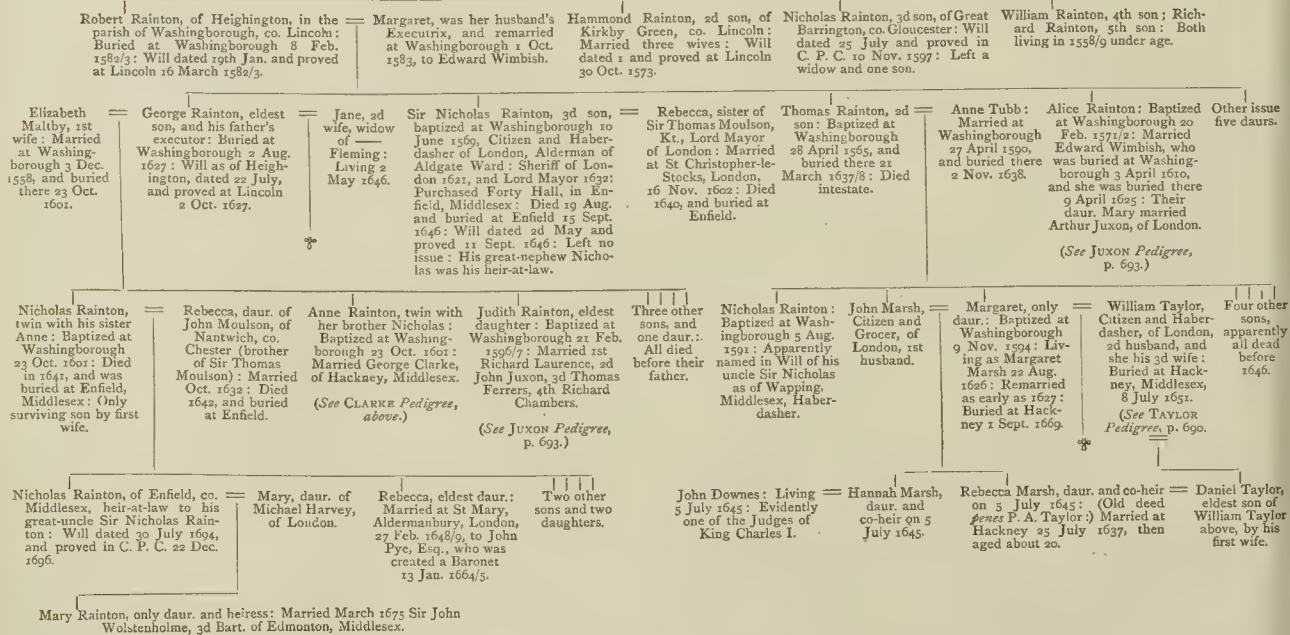 Robert Rainton, of Heighington, in the
parish of Washingborough, co. Lincoln:
Buried at Washingborough 8 Feb.
1582/3: Will dated 19th Jan. and proved
at Lincoln 16 March 1582/3.
Margaret, was her husband's
Executrix, and remarried
at Washingborough 1 Oct.
1583, to Edward Wimbish.
Hammond Rainton, 2d son, of
Kirkby Green, co. Lincoln:
Married three wives: Will
dated 1 and proved at Lincoln
30 Oct. 1573.
Nicholas Rainton, 3d son, of Great
Barrington, co. Gloucester: Will
dated 25 July and proved in
C. P. C. 10 Nov. 1597: Left a
widow and one son.
William Rainton, 4th son; Rich-
ard Rainton, 5th son: Both
living in 1558/9 under age.
Elizabeth
Maltby, 1st
wife: Married
at Washing-
borough 3 Dec.
1558, and buried
there 23 Oct.
1601.
George Rainton, eldest
son, and his father's
executor: Buried at
Washingborough 2 Aug.
1627: Will as of Heigh-
ington, dated 22 July,
and proved at Lincoln
2 Oct. 1627.
Jane, 2d
wife, widow
of —
Fleming:
Living 2
May 1646.
Sir Nicholas Rainton, 3d son,
baptized at Washingborough 10
June 1569, Citizen and Haber-
dasher of London, Alderman of
Aldgate Ward: Sheriff of Lon-
don 1621, and Lord Mayor 1632:
Purchased Forty Hall, in En-
field, Middlesex: Died 19 Aug.
and buried at Enfield 15 Sept.
1646: Will dated 2d May and
proved 11 Sept. 1646: Left no
issue: His great-nephew Nicho-
las was his heir-at-law.
Rebecca, sister of
Sir Thomas Moulson,
Kt., Lord Mayor
of London: Married
at St Christopher-le-
Stocks, London,
16 Nov. 1602: Died
1640, and buried at
Enfield.
Thomas Rainton, 2d
son: Baptized at
Washingborough
28 April 1565, and
buried there 21
March 1637/8: Died
intestate.
Anne Tubb:
Married at
Washingborough
27 April 1590,
and buried there
2 Nov. 1638.
Alice Rainton: Baptized
at Washingborough 20
Feb. 1571/2: Married
Edward Wimbish, who
was buried at Washing-
borough 3 April 1610,
and she was buried there
9 April 1625: Their
daur. Mary married
Arthur Juxon, of London.
(See JUXON Pedigree,
p. 693.)
Other issue
five daurs.
Nicholas Rainton,
twin with his sister
Anne: Baptized at
Washingborough
23 Oct. 1601: Died
in 1641, and was
buried at Enfield,
Middlesex: Only
surviving son by first
wife.
Rebecca, daur. of
John Moulson, of
Nantwich, co.
Chester (brother
of Sir Thomas
Moulson): Married
Oct. 1632: Died
1642, and buried
at Enfield.
Anne Rainton, twin with
her brother Nicholas:
Baptized at Washing-
borough 23 Oct. 1601:
Married George Clarke,
of Hackney, Middlesex.
(See CLARKE Pedigree,
above.)
Judith Rainton, eldest
daughter: Baptized at
Washingborough 21 Feb.
1596/7: Married 1st
Richard Laurence, 2d
John Juxon, 3d Thomas
Ferrers, 4th Richard
Chambers.
(See JUXON Pedigree,
p. 693.)
Three other
sons, and
one daur.:
All died
before their
father.
Nicholas Rainton:
Baptized at Wash-
ingborough 5 Aug.
1591: Apparently
named in Will of his
uncle Sir Nicholas
as of Wapping,
Middlesex, Haber-
dasher.
John Marsh,
Citizen and
Grocer, of
London, 1st
husband.
Margaret, only
daur.: Baptized at
Washingborough
9 Nov. 1594: Liv-
ing as Margaret
Marsh 22 Aug.
1626: Remarried
as early as 1627:
Buried at Hack-
ney 1 Sept. 1669.
William Taylor,
Citizen and Haber-
dasher, of London,
2d husband, and
she his 3d wife:
Buried at Hack-
ney, Middlesex,
8 July 1651.
(See TAYLOR
Pedigree, p. 690.
Four other
sons,
apparently
all dead
before
1646.
Nicholas Rainton, of Enfield, co.
Middlesex, heir-at-law to his
great-uncle Sir Nicholas Rain-
ton: Will dated 30 July 1694,
and proved in C. P. C. 22 Dec.
1696.
Mary, daur. of
Michael Harvey,
of London.
Rebecca, eldest daur.:
Married at St Mary,
Aldermanbury, London,
27 Feb. 1648/9, to John
Pye, Esq., who was
created a Baronet
13 Jan. 1664/5.
Two other
sons and two
daughters.
John Downes: Living
5 July 1645: Evidently
one of the Judges of
King Charles I.
Hannah Marsh,
daur. and
co-heir on 5
July 1645.
Rebecca Marsh, daur. and co-heir
on 5 July 1645: (Old deed
penes P. A. Taylor:) Married at
Hackney 25 July 1637, then
aged about 20.
Daniel Taylor,
eldest son of
William Taylor
above, by his
first wife.
Mary Rainton, only daur. and heiress: Married March 1675 Sir John
Wolstenholme, 3d Bart. of Edmonton, Middlesex.